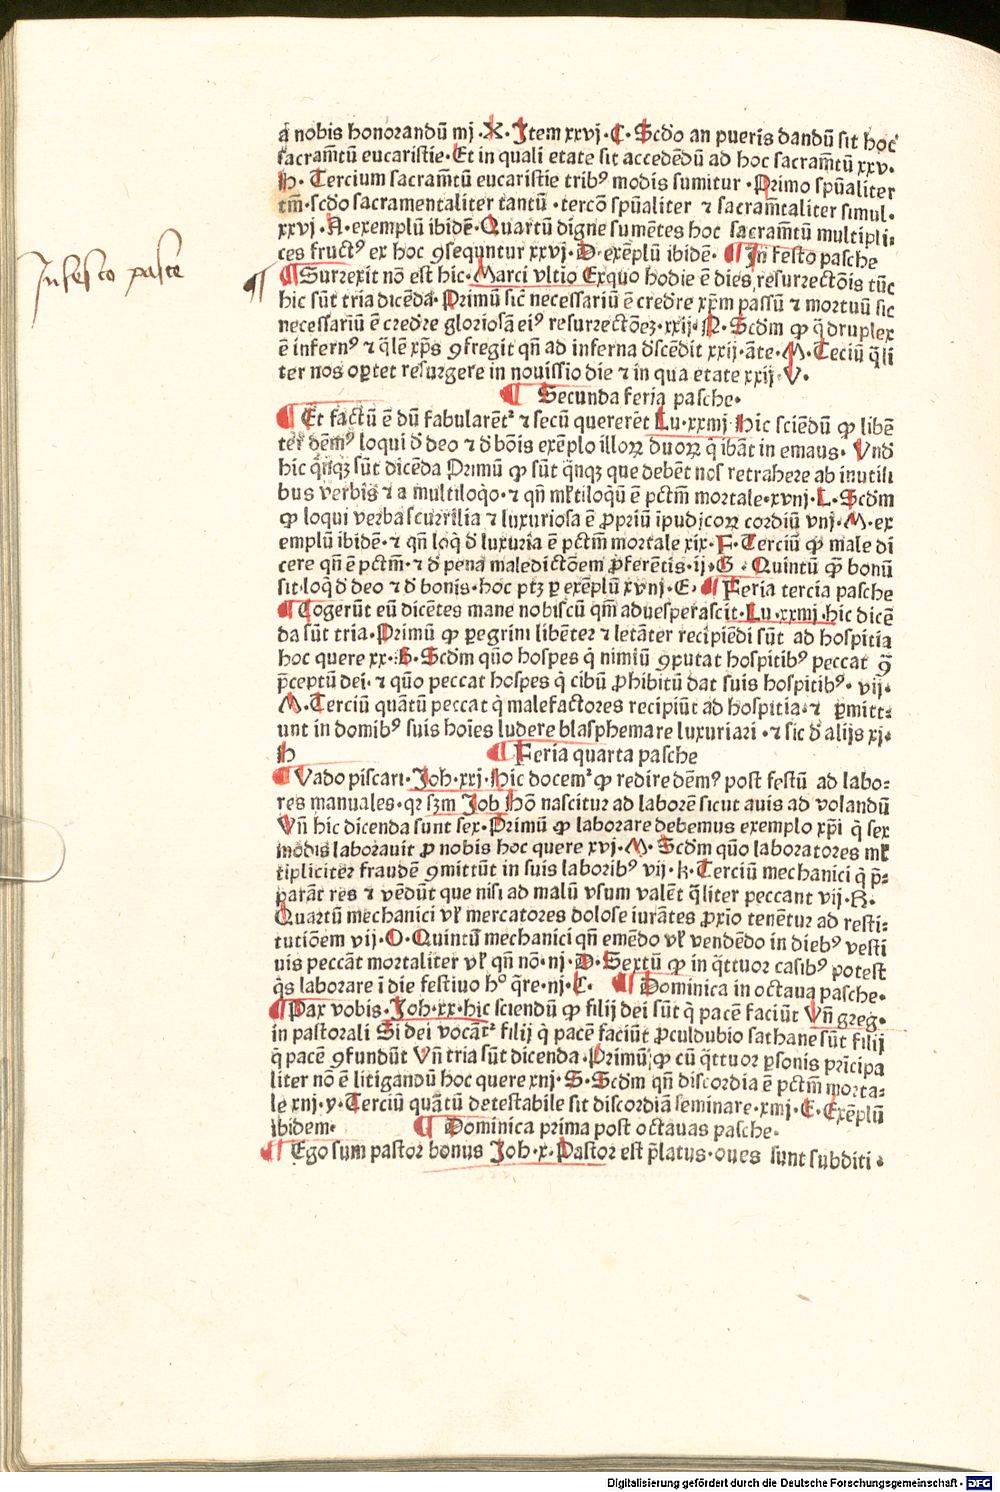 In festo pasce
a nobis honorandū mj ·X· Item xxvj ·C· Scd̄o an pueris dandū sit hoc
sacramt̄ū eucaristie· Et in quali etate sit accedēdū ad hoc sacram̄tū xxv·
H· Tercium sacram̄tū eucaristie tribꝰ modis sumitur · Primo spūaliter
tm̄· scd̄o sacramentaliter tantū · tercō spūaliter ⁊ sacram̄taliter simul·
xxvj ·A· exemplū ibidē· Quartū digne sumētes hoc sacram̄tū multipli⸗
ces fructꝰ ex hoc ꝯsequntur xxvj· D· exēplū ibidē· ¶ In festo pasche
¶ Surrexit nō est hic· Marci vltīo Exquo hodie ē dies resurrectōis tūc
hic sūt tria dicēda· Primū sic̄ necessariū ē credr̄e xp̄m passū ⁊ mortuū sic
necessariū ē credr̄e gloriosā eiꝰ resurrectōeꝫ· xxij· P· Scd̄m ꝙ q̄druplex
ē infernꝰ ⁊ q̄lē xp̄s ꝯfregit qn̄ ad inferna d̄scēdit xxij· āte· M· Terciū q̄li
ter nos oꝑtet resurgere in nouissīo die ⁊ in qua etate xxij· V·
¶ Secunda feria pasche·
¶ Et factū ē dū fabularēt᷑ ⁊ secū quererēt Lu· xxiiij· Hic sciēdū ꝙ libē
ter dēmꝰ loqui d̄ deo ⁊ d̄ bōis exēplo illoꝝ duoꝝ q̄ ibāt in emaus· Vnd̄
hic q̄nqꝫ sūt dicēda Primū ꝙ sūt q̄nqꝫ que debēt nos retrahere ab inutili
bus verbis ⁊ a multiloq̊o· ⁊ qn̄ ml̄tiloqū ē pctm̄ mortale· xviij· L· Scd̄m
ꝙ loqui verba scurrilia ⁊ luxuriosa ē ꝓpriū īpudicoꝝ cordiū viij· M· ex
emplū ibidē· ⁊ qn̄ loq̄ d̄ luxuria ē pctm̄ mortale xix· F· Terciū ꝙ male di
cere qn̄ ē pctm̄· ⁊ d̄ pena maledictōem ꝓferētis· ij· G · Quintū ꝙ bonū
sit loq̄ d̄ deo ⁊ d̄ bonis· hoc ptꝫ ꝑ exēplū xviij· E· ¶ Feria tercia pasche
¶ Cogerūt eū dicētes mane nobiscū qm̄ aduesperascit· Lu· xxiiij· hic dicē
da sūt tria· Primū ꝙ ꝑegrini libēter ⁊ letāter recipiēdi sūt ad hospitia
hoc quere xx· B· Scd̄m quō hospes q̄ nimiū ꝯputat hospitibꝰ peccat ꝯ̄
p̄ceptū dei· ⁊ quō peccat hospes q̄ cibū ꝓhibitū dat suis hospitibꝰ· vij·
M· Terciū quātū peccat q̄ malefactores recipiūt ad hospitia· ⁊ ꝑmitt⸗
unt in domibꝰ suis hoīes ludere blasphemare luxuriari · ⁊ sic d̄ alijs xj·
H ¶ Feria quarta pasche
¶ Vado piscari· Joh· xxj· Hic docem᷑ ꝙ redire dēmꝰ post festū ad labo⸗
res manuales· qr sꝫm Job Hō nascitur ad laborē sicut auis ad volandū
Vn̄ hic dicenda sunt sex· Primū ꝙ laborare debemus exemplo xp̄i q̄ sex
modis laborauit ꝓ nobis hoc quere xvj· M· Scd̄m quō laboratores ml̄
tipliciter fraudē ꝯmittūt in suis laboribꝰ vij· K· Terciū mechanici q̄ p̄⸗
parāt res ⁊ vēdūt que nisi ad malū vsum valēt q̄liter peccant vij· R·
Quartū mechanici vl̄ mercatores dolose iurātes ꝓxīo tenētur ad resti⸗
tutiōem vij· O· Quintū mechanici qn̄ emēdo vl̄ vendēdo in diebꝰ vesti
uis peccāt mortaliter vl̄ qn̄ nō· iij· D· Sextū ꝙ in q̄ttuor casibꝰ potest
q̄s laborare ī die festiuo hꝰ q̄re· iij· C· ¶ Dominica in octaua pasche·
¶ Pax vobis· Joh· xx· hic sciendū ꝙ filij dei sūt q̄ pacē faciūt Vn̄ greg·
in pastorali Si dei vocāt᷑ filij q̄ pacē faciūt ꝓculdubio sathane sūt filij
q̄ pacē ꝯfundūt Vn̄ tria sūt dicenda · Primū ꝙ cū q̄ttuor ꝑsonis prīcipa
liter nō ē litigandū hoc quere xiij· S· Scd̄m qn̄ discordia ē pctm̄ morta⸗
le xiij· y· Terciū quātū detestabile sit discordiā seminare· xiiij· E· Exēplū
ibidem· ¶ Dominica prima post octauas pasche·
¶ Ego sum pastor bonus Joh· x· Pastor est p̄latus· oues sunt subditi ·
Digitalisierung gefördert durch die Deutsche Forschungsgemeinschaft - DFG